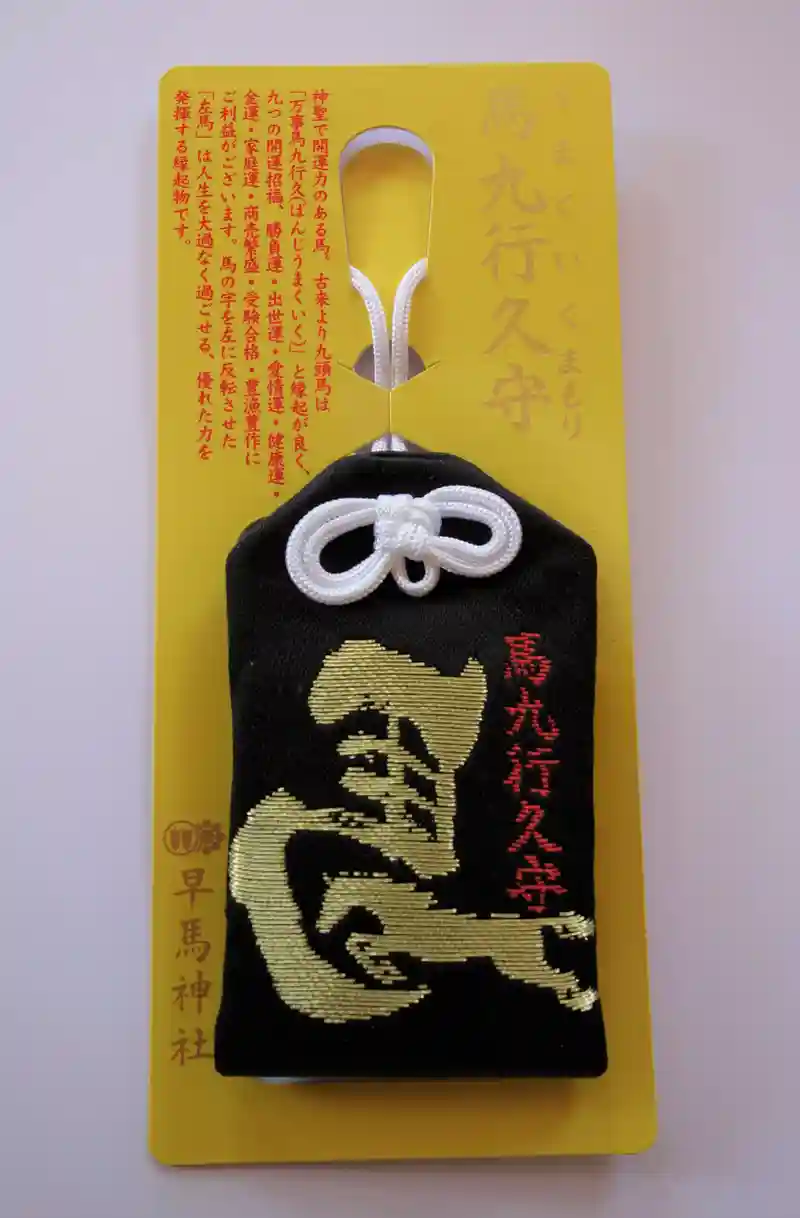 馬九行久守
うまくいくまもり
神聖で開運力のある馬。古来より九頭馬は
「万事馬九行久(ばんじうまくいく)」と縁起が良く、
九つの開運招福、勝負運・出世運・愛情運・健康運・
金運・家庭運・商売繁盛・受験合格・豊漁豊作に
ご利益がございます。馬の字を左に反転させた
「左馬」は人生を大過なく過ごせる、優れた力を
発揮する縁起物です。
馬九行久守
早馬神社